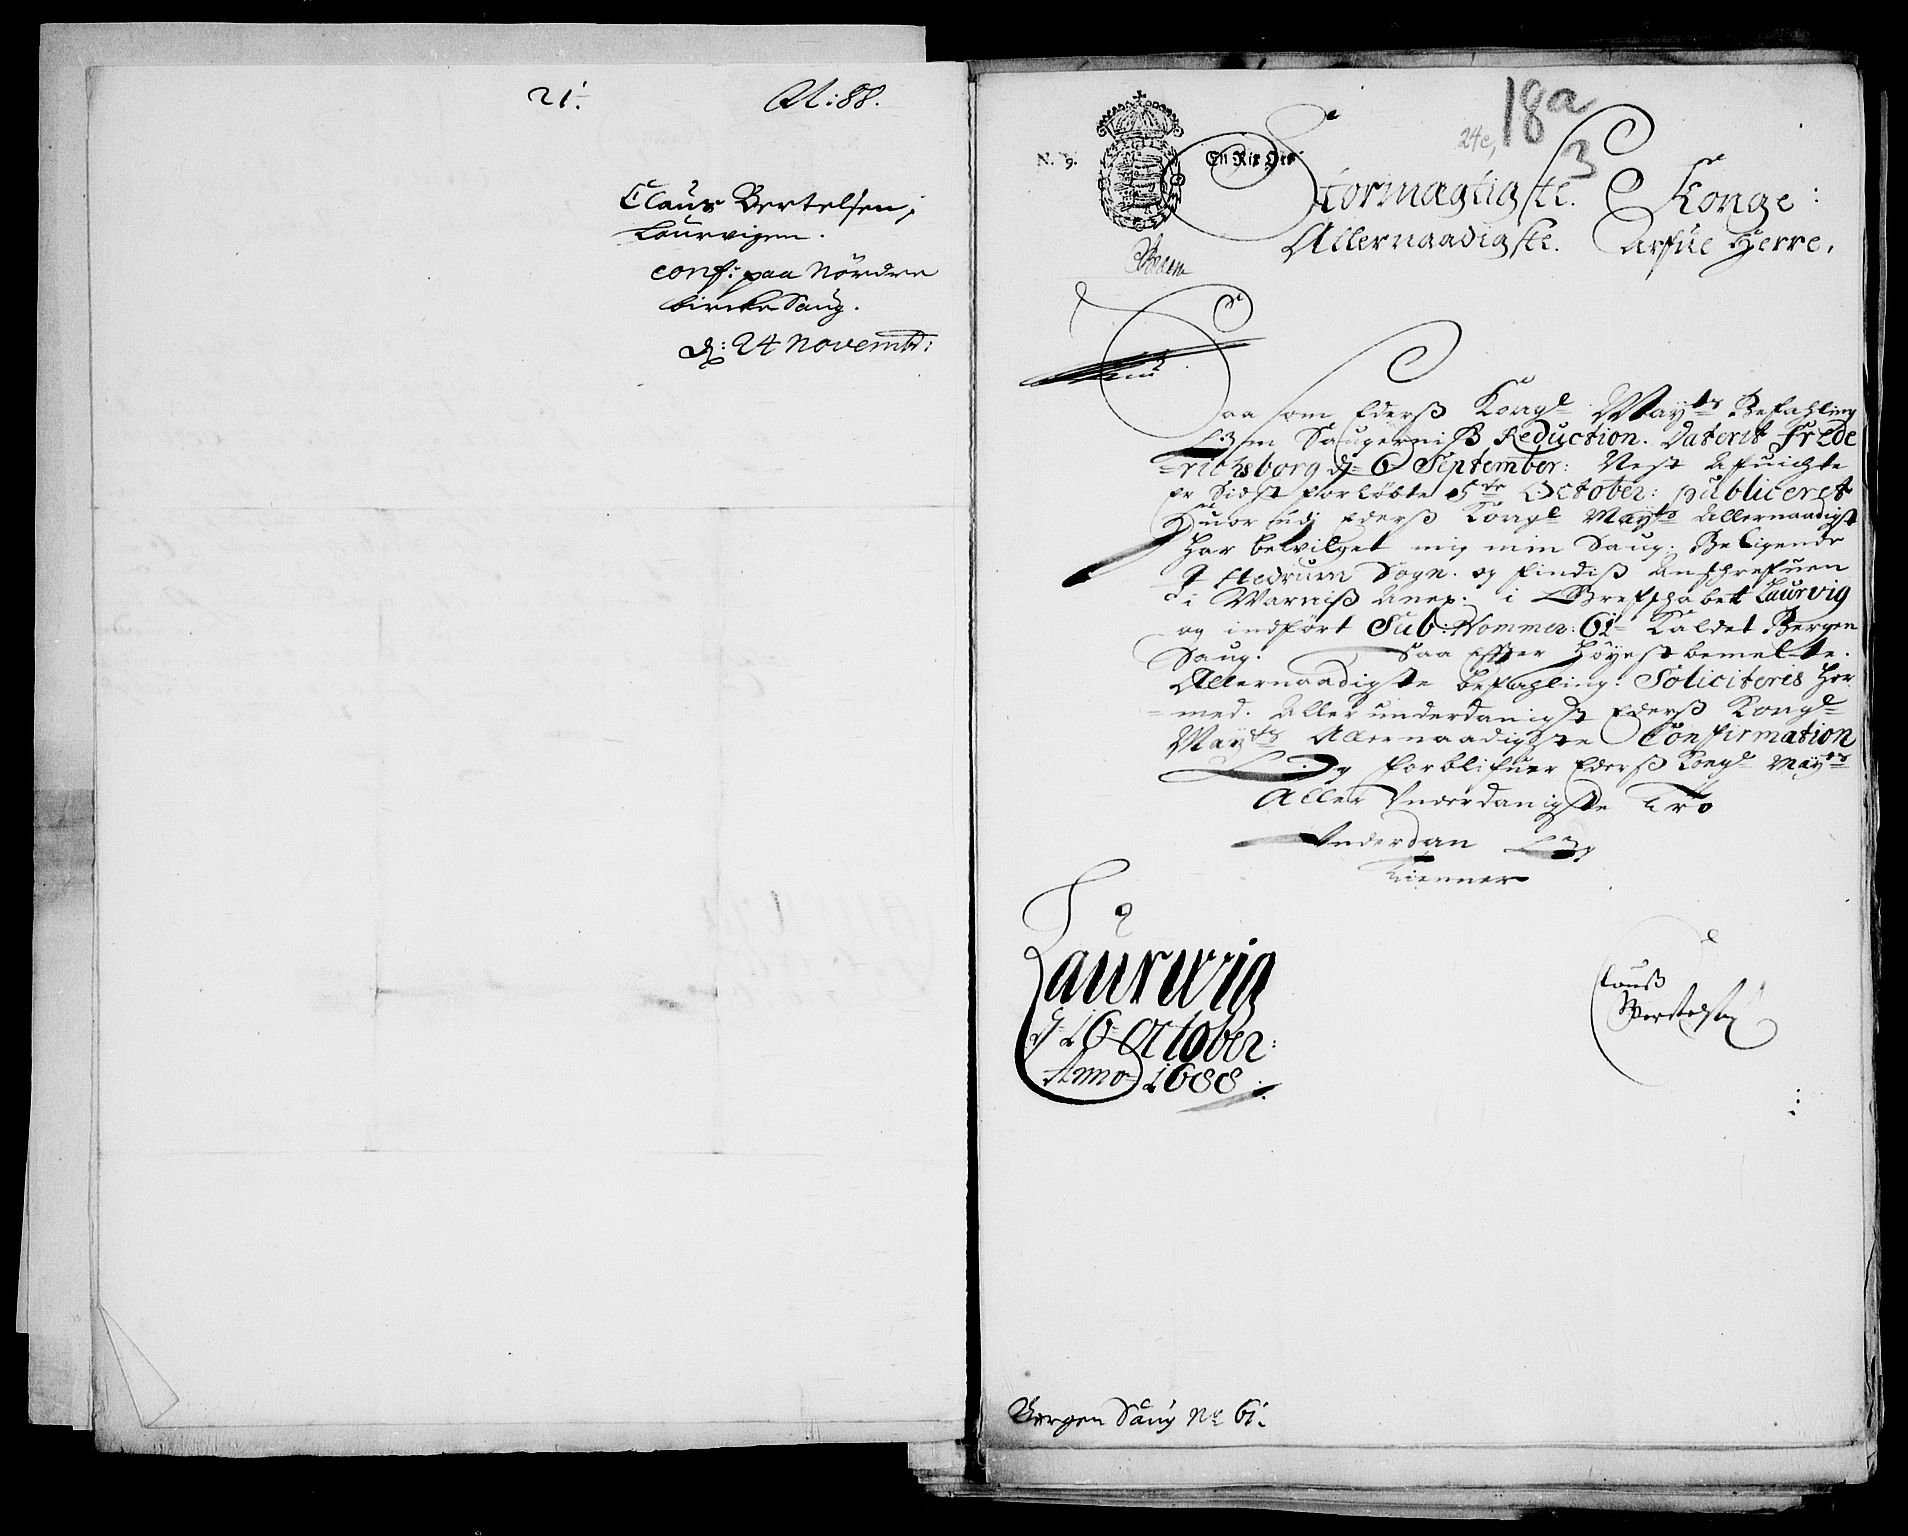 21.
A: 88.
Claus Bertelsen i
Laurvigen.
conf: paa Nördre
bircke Saug.
d: 24 Novembr:
18a
24c,
3
N. 9.
En Rix Ort
Stormægtigste. Konge:
Allernaadigste. Arfue Herre,
Saasom Ederß Kongl Mayts Befahling
Om Saugerniß Reduction. Daterit Frede
=richsborg d: 6 September: Nest Afuichte
er Sidst forløbte 5te October: publiceret
Huor udj Ederß Kongl Mayts Allernaadigst
Har beVilget mig min Saug. Beligende
I Hedrum Sogn. og findiß Anschrefuen
i Warniß Anex. i Grefschabet Laurvig
og indført Sub: Nommer: 61 Kaldet Bergen
Saug. Saa effter Høyestbemelte.
Allernaadigste befahling: Soliciteres Her
=med. Allerunderdanigst Ederß Kongl
Mayts Allernaadigste Confirmation
Og forblifuer Ederß Kongl Mayts
Aller Underdanigste Tro
Underdan Og
Tienner
Laurwig
d: 16 October:
Anno 1688.
Clauß
Bertelsen
Bergen Saug No 61.